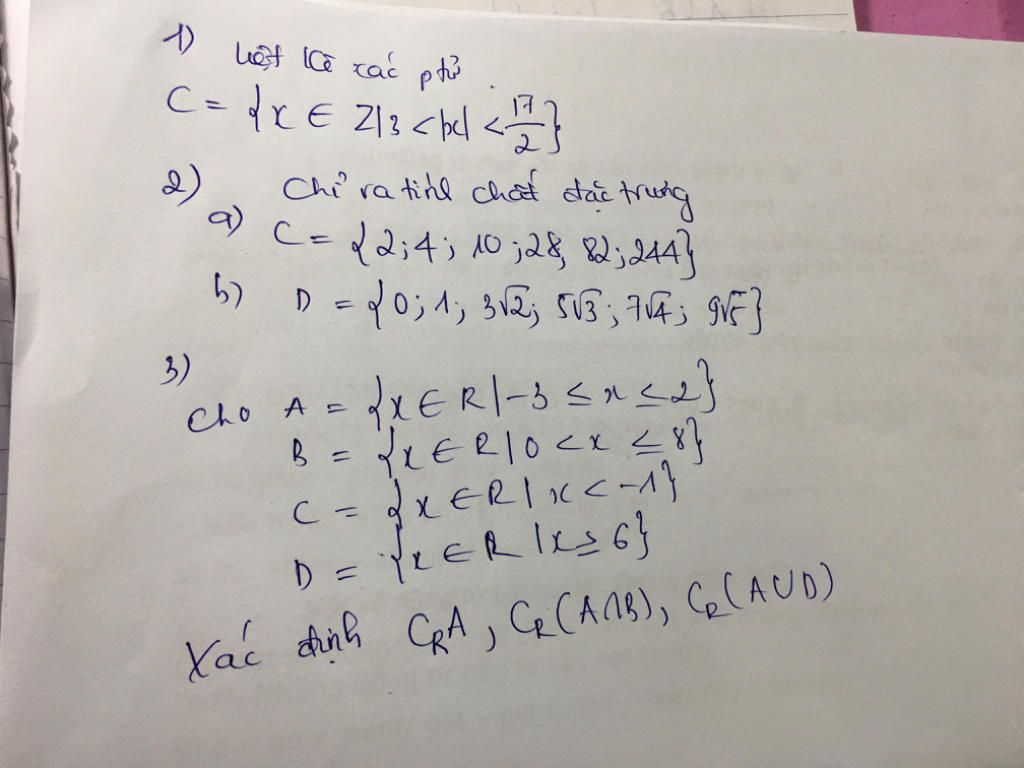 1) Liệt kê các ptử
C = {x ∈ Z | 3 < |x| < 17/2}
2) Chỉ ra tính chất đặc trưng
a) C = {2; 4; 10; 28; 82; 244}
b) D = {0; 1; 3√2; 5√3; 7√4; 9√5}
3)
Cho A = {x ∈ R | -3 ≤ x ≤ 2}
B = {x ∈ R | 0 < x ≤ 8}
C = {x ∈ R | x < -1}
D = {x ∈ R | x ≥ 6}
Xác định CRA, CR(A∩B), CR(A∪D)